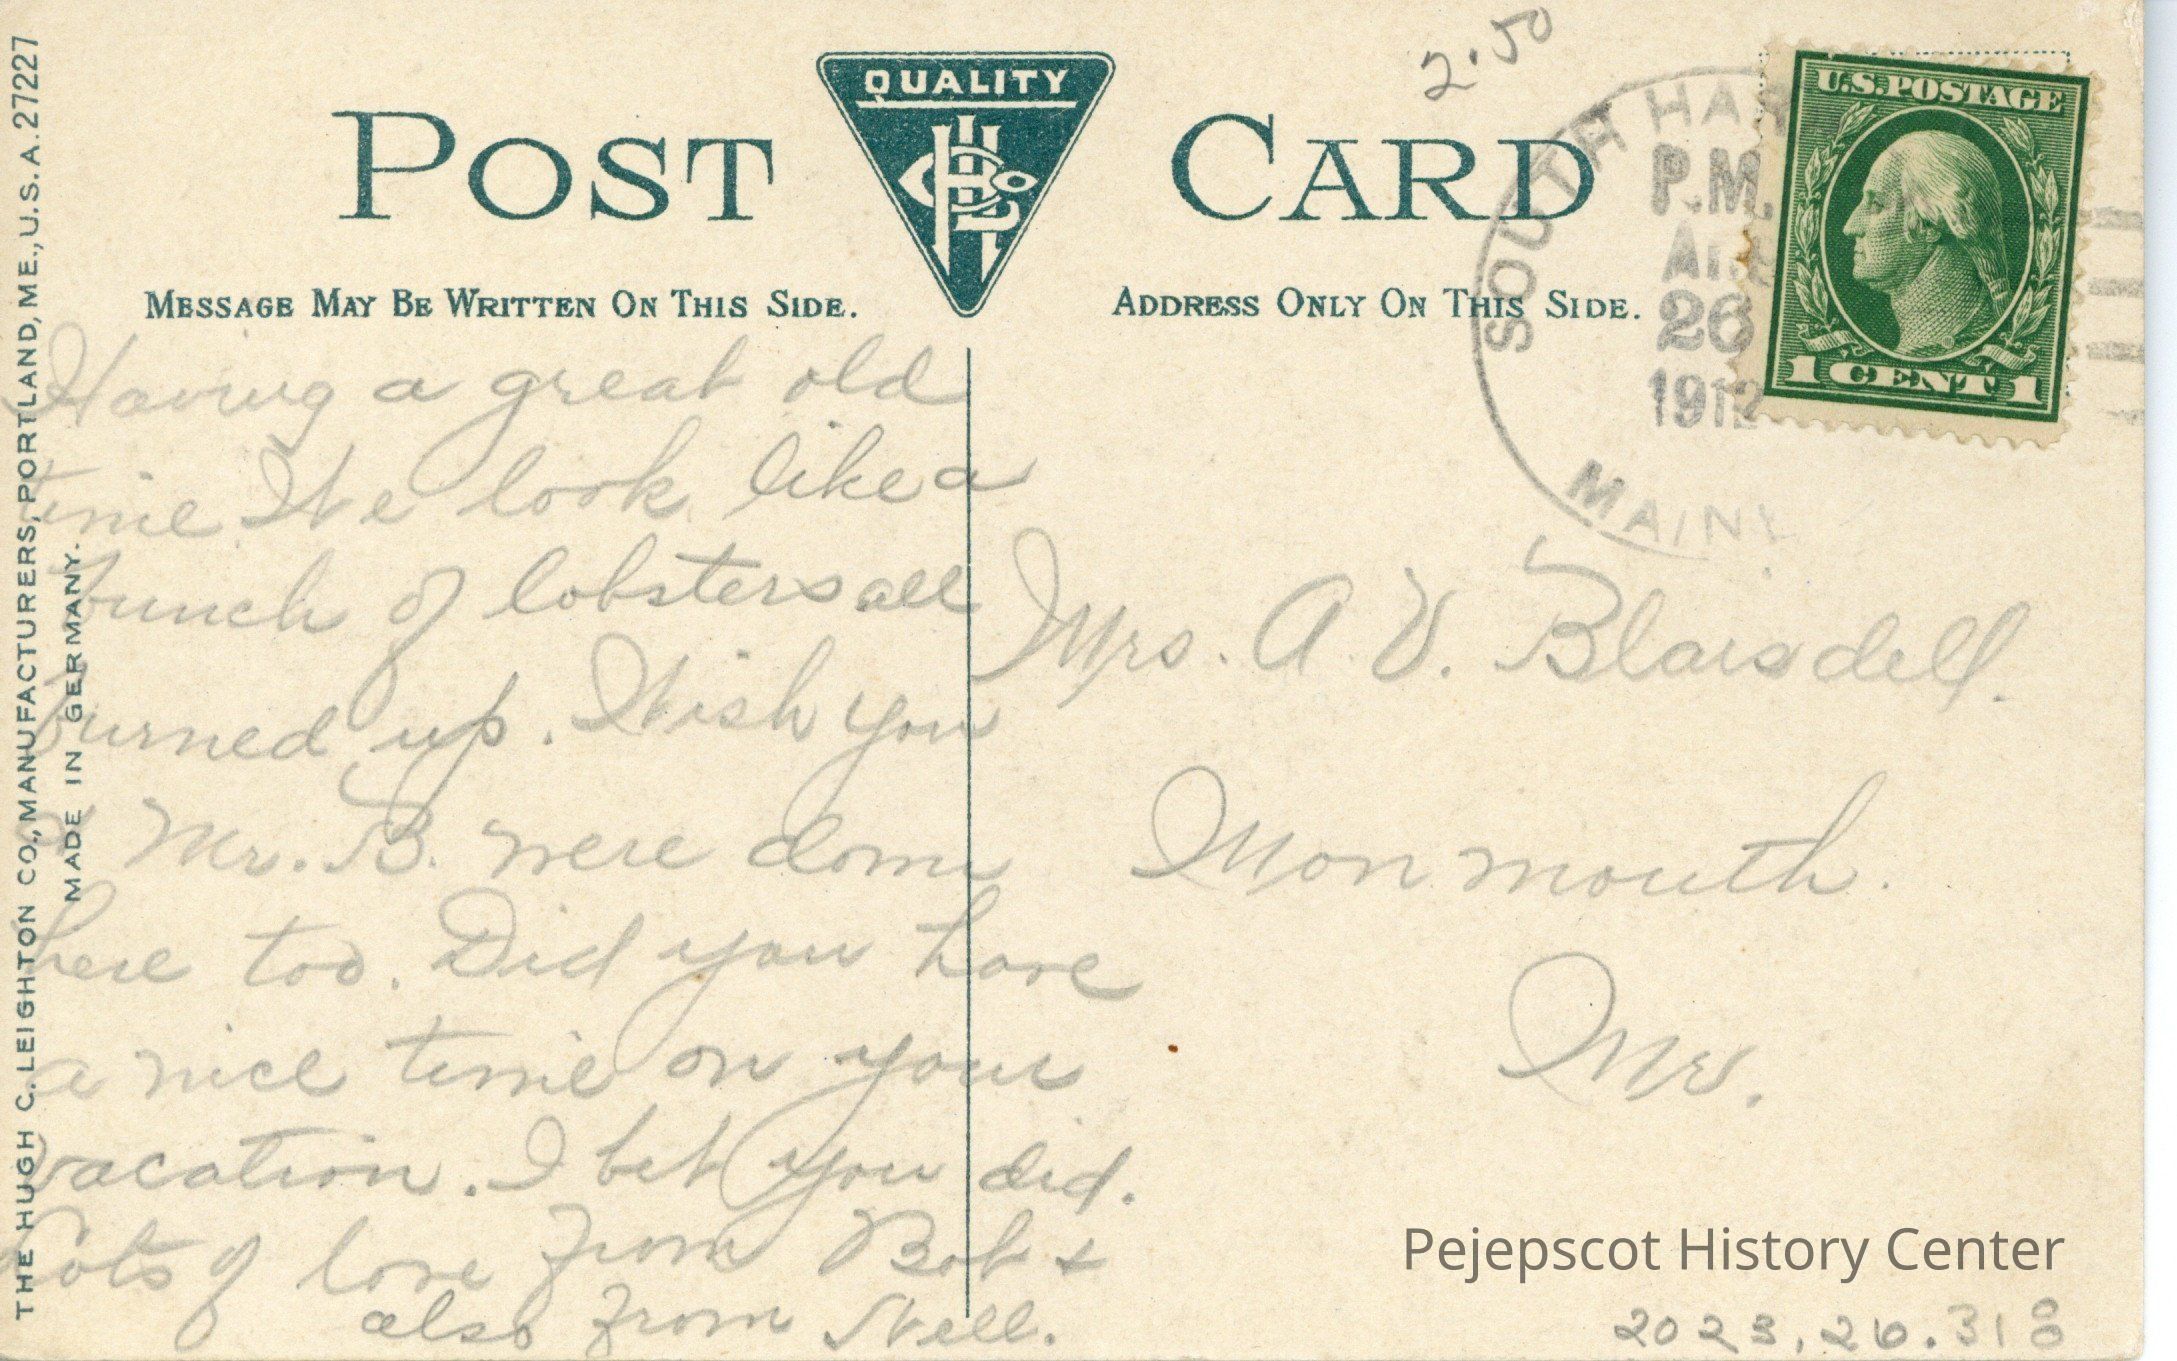 THE HUGH C. LEIGHTON CO., MANUFACTURERS, PORTLAND, ME., U.S.A. 27227
MADE IN GERMANY.
POST CARD
QUALITY
2.50
SOUTH HAR
MAINE
P.M.
AUG
26
1912
U.S. POSTAGE
1 CENT 1
MESSAGE MAY BE WRITTEN ON THIS SIDE.
ADDRESS ONLY ON THIS SIDE.
Having a great old
time. We look like a
bunch of lobsters all
burned up. Wish you
& Mr. B. were down
here too. Did you have
a nice time on your
vacation. I bet you did.
Lots of love from Bob &
also from Nell.
Mrs. A. V. Blaisdell.
Monmouth.
Me.
Pejepscot History Center
2023.26.318